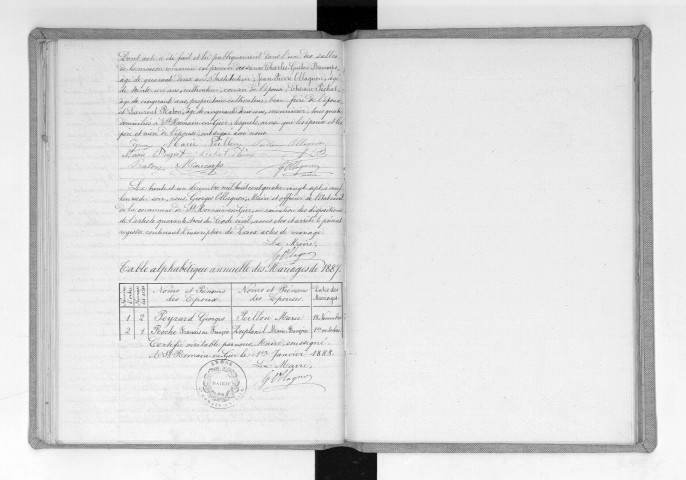 Dont acte a été fait et lu publiquement dans l'une des salles
de la maison commune en présence des sieurs Charles Gustave
âgé de quarante deux ans Instituteur, Jean Pierre Ollagnon, âgé
de trente ans, cultivateur, cousin de l'époux, Etienne Pichat,
âgé de cinquante ans, propriétaire cultivateur, beau-frère de l'époux,
et Laurent Platon, âgé de cinquante deux ans, tous quatre
domiciliés à St Romain en Gier, lesquels, ainsi que les époux et les
père et mère de l'épouse, ont signé avec nous.
Marie Peillon
Marie
Ollagnon
Le trente et un décembre mil huit cent quatre vingt sept à neuf
heures du soir, nous Georges Ollagnon, Maire et officier de l'état civil
de la commune de St Romain en Gier, en exécution des dispositions
de l'article quarante trois du Code civil, avons clos et arrêté le présent
registre contenant l'inscription de Deux actes de mariage.
Le Maire,
G. Ollagnon
Table alphabétique annuelle des Mariages de 1887.
Noms et Prénoms des Epoux Noms et Prénoms des Epouses Dates des Mariages
1 2 Peyrard Georges Peillon Marie 19 Novembre
2 1 Roche François Marie Françoise 1er octobre
Certifié véritable par nous, Maire, soussigné
A St Romain en Gier le 1er Janvier 1888.
Le Maire,
G. Ollagnon
MAIRIE